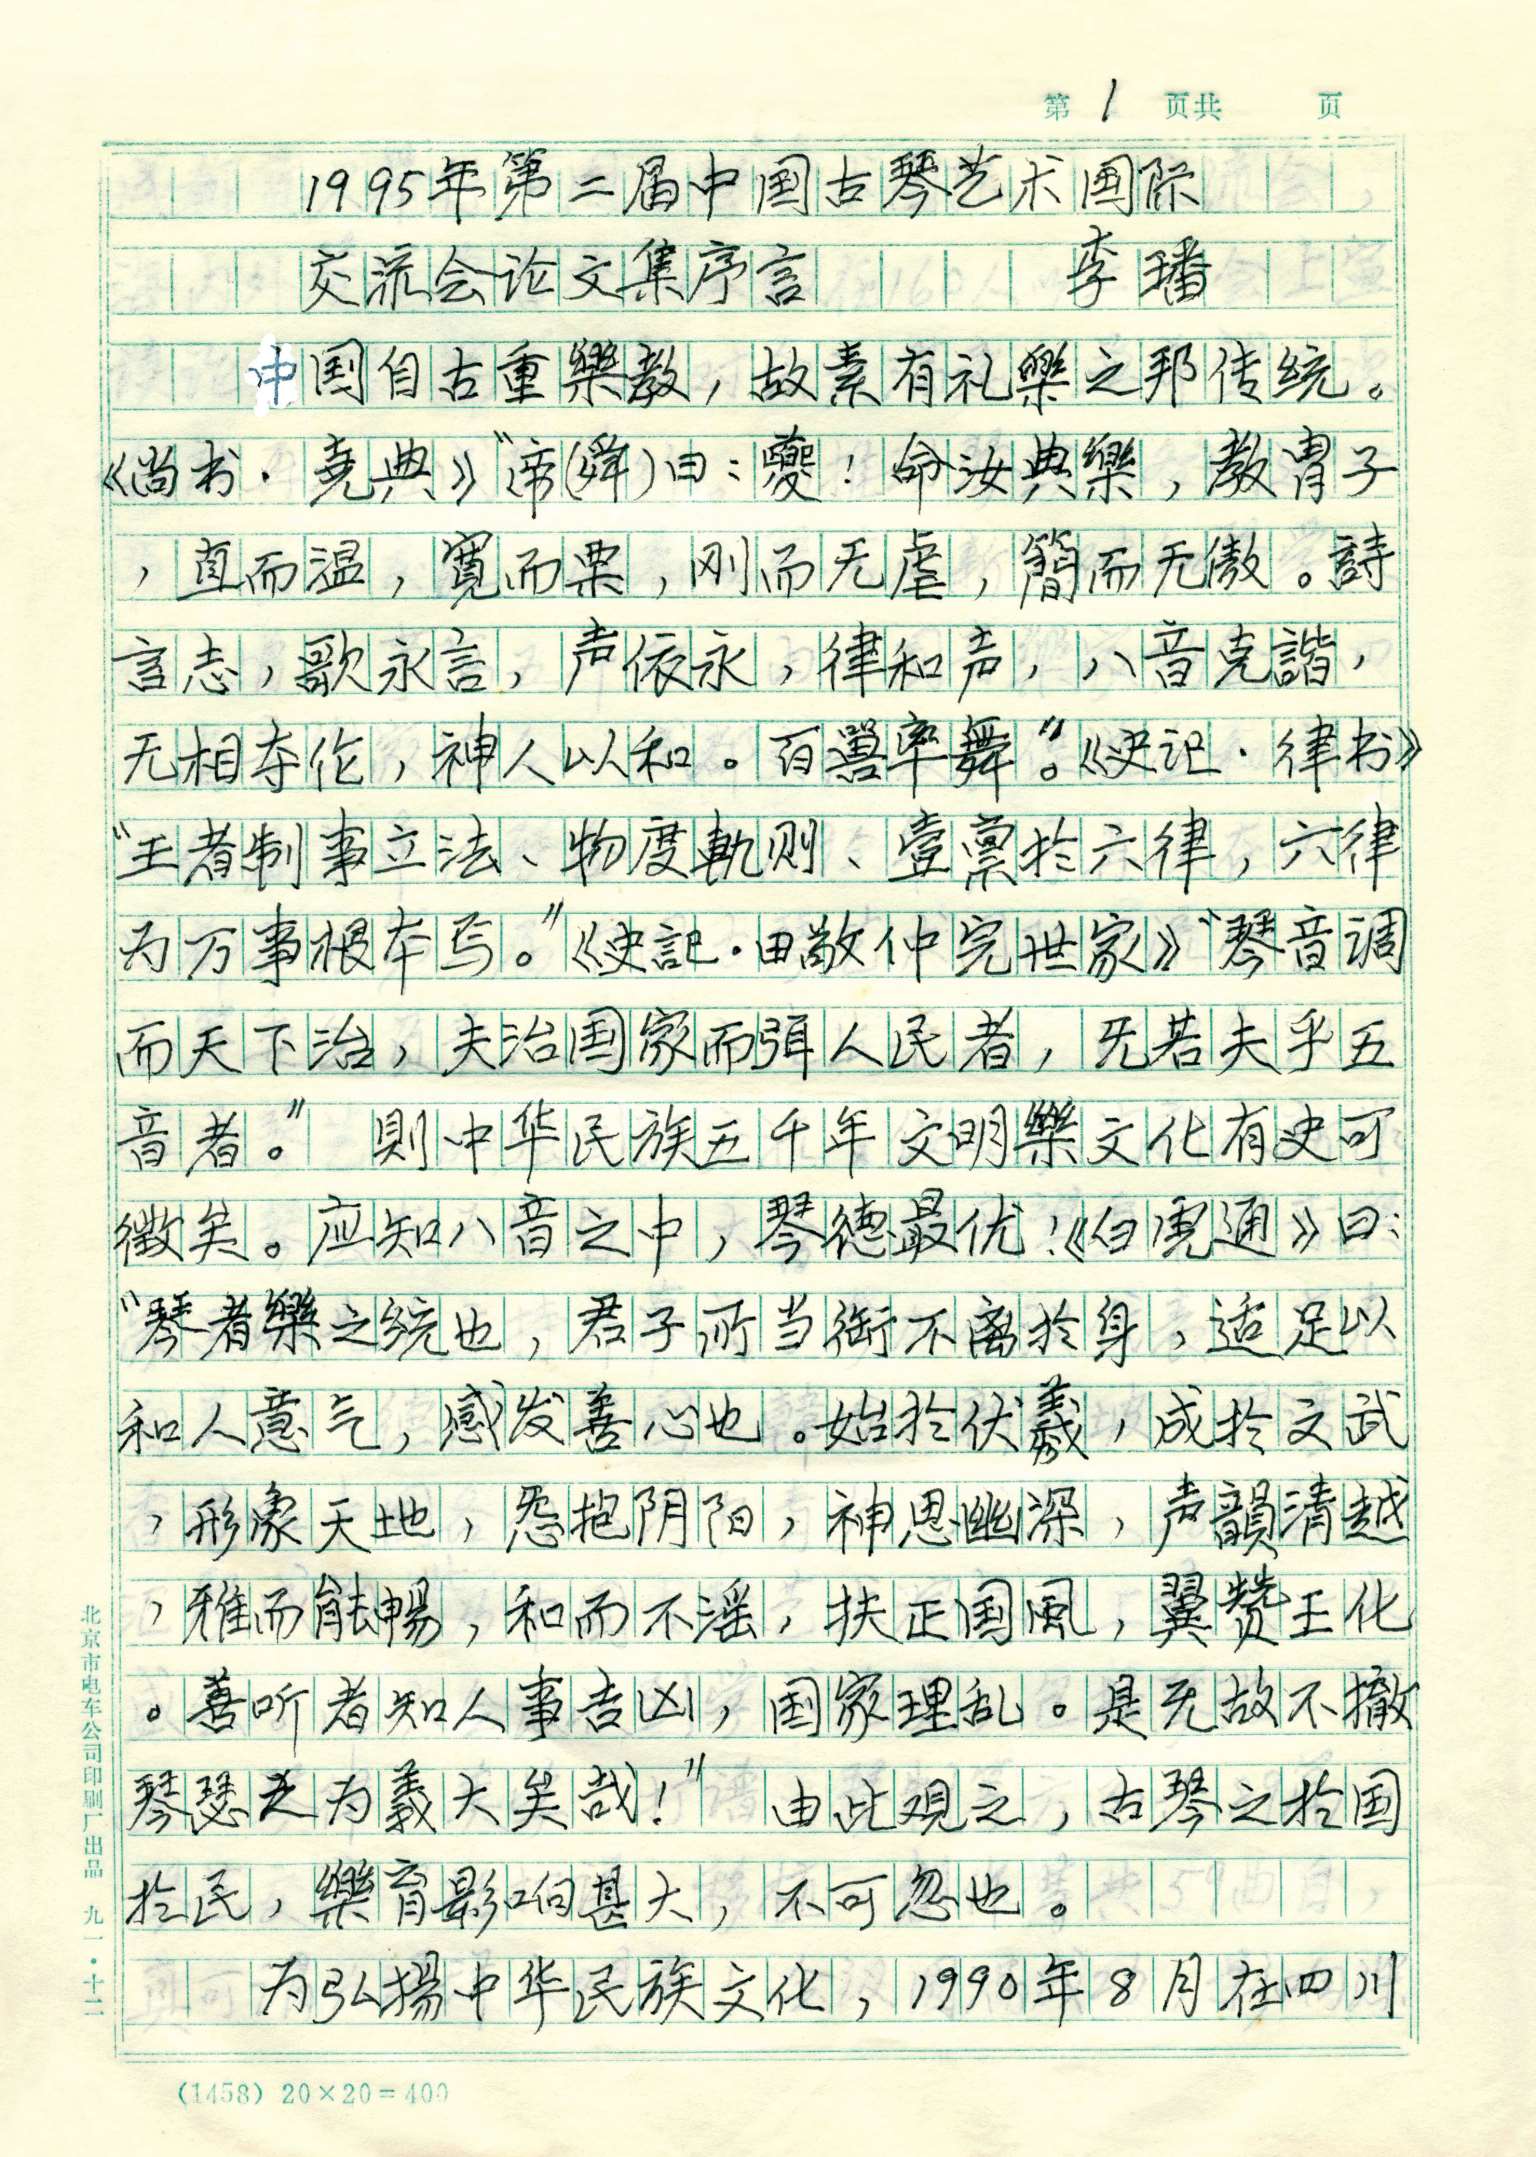 第 1 页共 页
1995年第二届中国古琴艺术国际
交流会论文集序言 李璠
中国自古重樂教，故素有礼樂之邦传统。
《尚书·尧典》“帝(舜)曰：夔！命汝典樂，教胄子
，直而温，寬而栗，刚而无虐，簡而无傲。詩
言志，歌永言，声依永，律和声，八音克諧，
无相夺伦，神人以和。百獸率舞”。《史记·律书》
“王者制事立法、物度軌则、壹禀於六律，六律
为万事根本焉。”《史記·田敬仲完世家》“琴音调
而天下治，夫治国家而弭人民者，无若夫乎五
音者。” 則中华民族五千年文明樂文化有史可
徵矣。应知八音之中，琴德最优！《白虎通》曰：
“琴者樂之统也，君子所当御不离於身，适足以
和人意气，感发善心也。始於伏羲，成於文武
，形象天地，怨抱阴阳，神思幽深，声韻清越
，雅而能暢，和而不淫，扶正国風，翼赞王化
。善听者知人事吉凶，国家理乱。是无故不撤
琴瑟之为義大矣哉！” 由此观之，古琴之於国
於民，樂育影响甚大，不可忽也。
为弘揚中华民族文化，1990年8月在四川
北京市电车公司印刷厂出品 九一·十二
(1458) 20×20=400